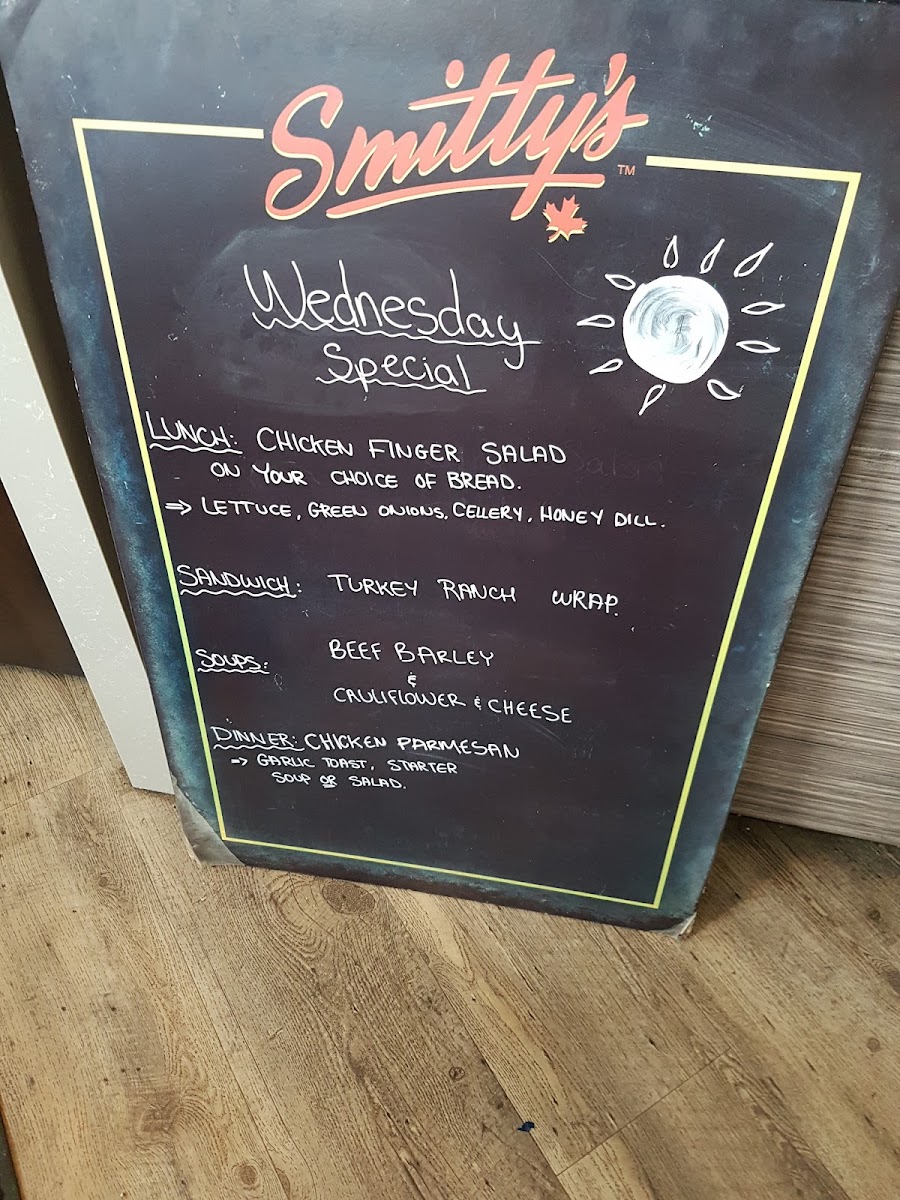 Smitty's
TM
Wednesday
Special
LUNCH: CHICKEN FINGER SALAD
ON YOUR CHOICE OF BREAD.
⇒ LETTUCE, GREEN ONIONS, CELLERY, HONEY DILL.
SANDWICH: TURKEY RANCH WRAP.
SOUPS: BEEF BARLEY
&
CAULIFLOWER & CHEESE
DINNER: CHICKEN PARMESAN
⇒ GARLIC TOAST, STARTER
SOUP OR SALAD.